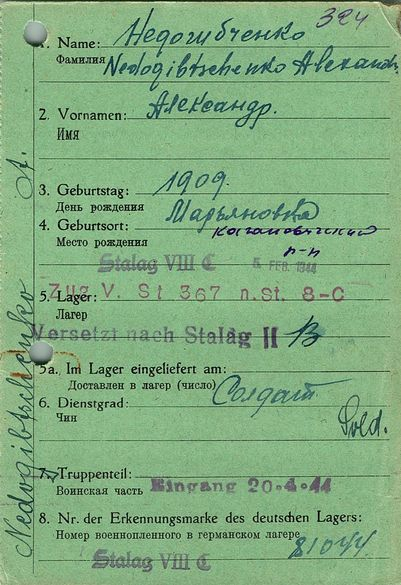 324
1. Name: Недогибченко
Фамилия
Nedogibtschenko Alexandr.
2. Vornamen: Александр.
Имя
3. Geburtstag: 1909.
День рождения
4. Geburtsort: Марьяновка
Место рождения Кагановический
р-н
Stalag VIII C 5. FEB. 1944
5. Lager: Zug V. St 367 n. St. 8-C
Лагер
Versetzt nach Stalag II B
5a. Im Lager eingeliefert am:
Доставлен в лагер (число)
6. Dienstgrad: Солдат
Чин
Sold.
7. Truppenteil:
Воинская часть Eingang 20.4.44
8. Nr. der Erkennungsmarke des deutschen Lagers:
Номер военнопленного в германском лагере
81044
Stalag VIII C
Nedogibtschenko A.